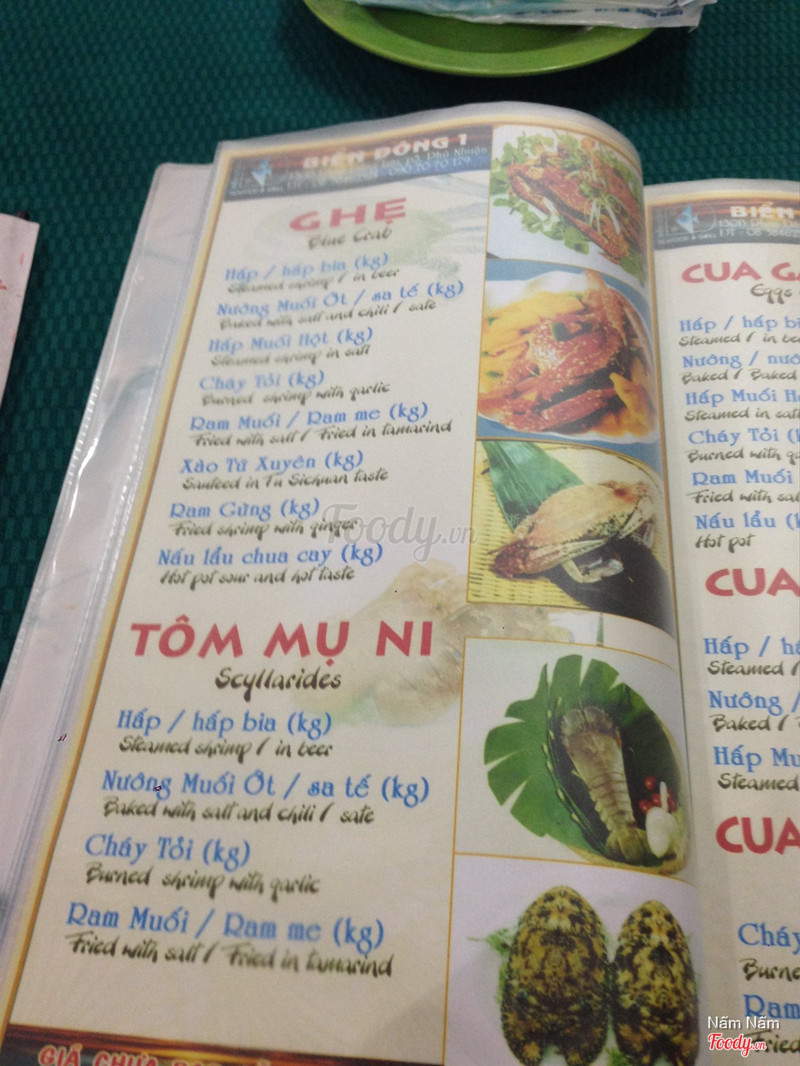 BIỂN ĐÔNG 1
P3, Phú Nhuận
090 70 70 179
GHẸ
Blue Crab
Hấp / hấp bia (kg)
Steamed shrimp / in beer
Nướng Muối Ớt / sa tế (kg)
Baked with salt and chili / sate
Hấp Muối Hột (kg)
Steamed shrimp in salt
Cháy Tỏi (kg)
Burned shrimp with garlic
Ram Muối / Ram me (kg)
Fried with salt / Fried in tamarind
Xào Tứ Xuyên (kg)
Sauteed in Tu Sichuan taste
Ram Gừng (kg)
Fried shrimp with ginger
Nấu lẩu chua cay (kg)
Hot pot sour and hot taste
TÔM MỤ NI
Scyllarides
Hấp / hấp bia (kg)
Steamed shrimp / in beer
Nướng Muối Ớt / sa tế (kg)
Baked with salt and chili / sate
Cháy Tỏi (kg)
Burned shrimp with garlic
Ram Muối / Ram me (kg)
Fried with salt / Fried in tamarind
GIÁ CHƯA
BIỂN
130B
CUA
Eggs
Hấp / hấp
Steamed / in
Nướng /
Baked / Baked
Hấp Muối
Steamed in
Cháy Tỏi
Burned with
Ram Muối
Fried with
Nấu lẩu
Hot pot
CUA
Hấp /
Steamed /
Nướng /
Baked
Hấp
Steamed
CUA
Cháy
Burned
Ram
Fried
Foody.vn
Nấm Nấm
Foody.vn